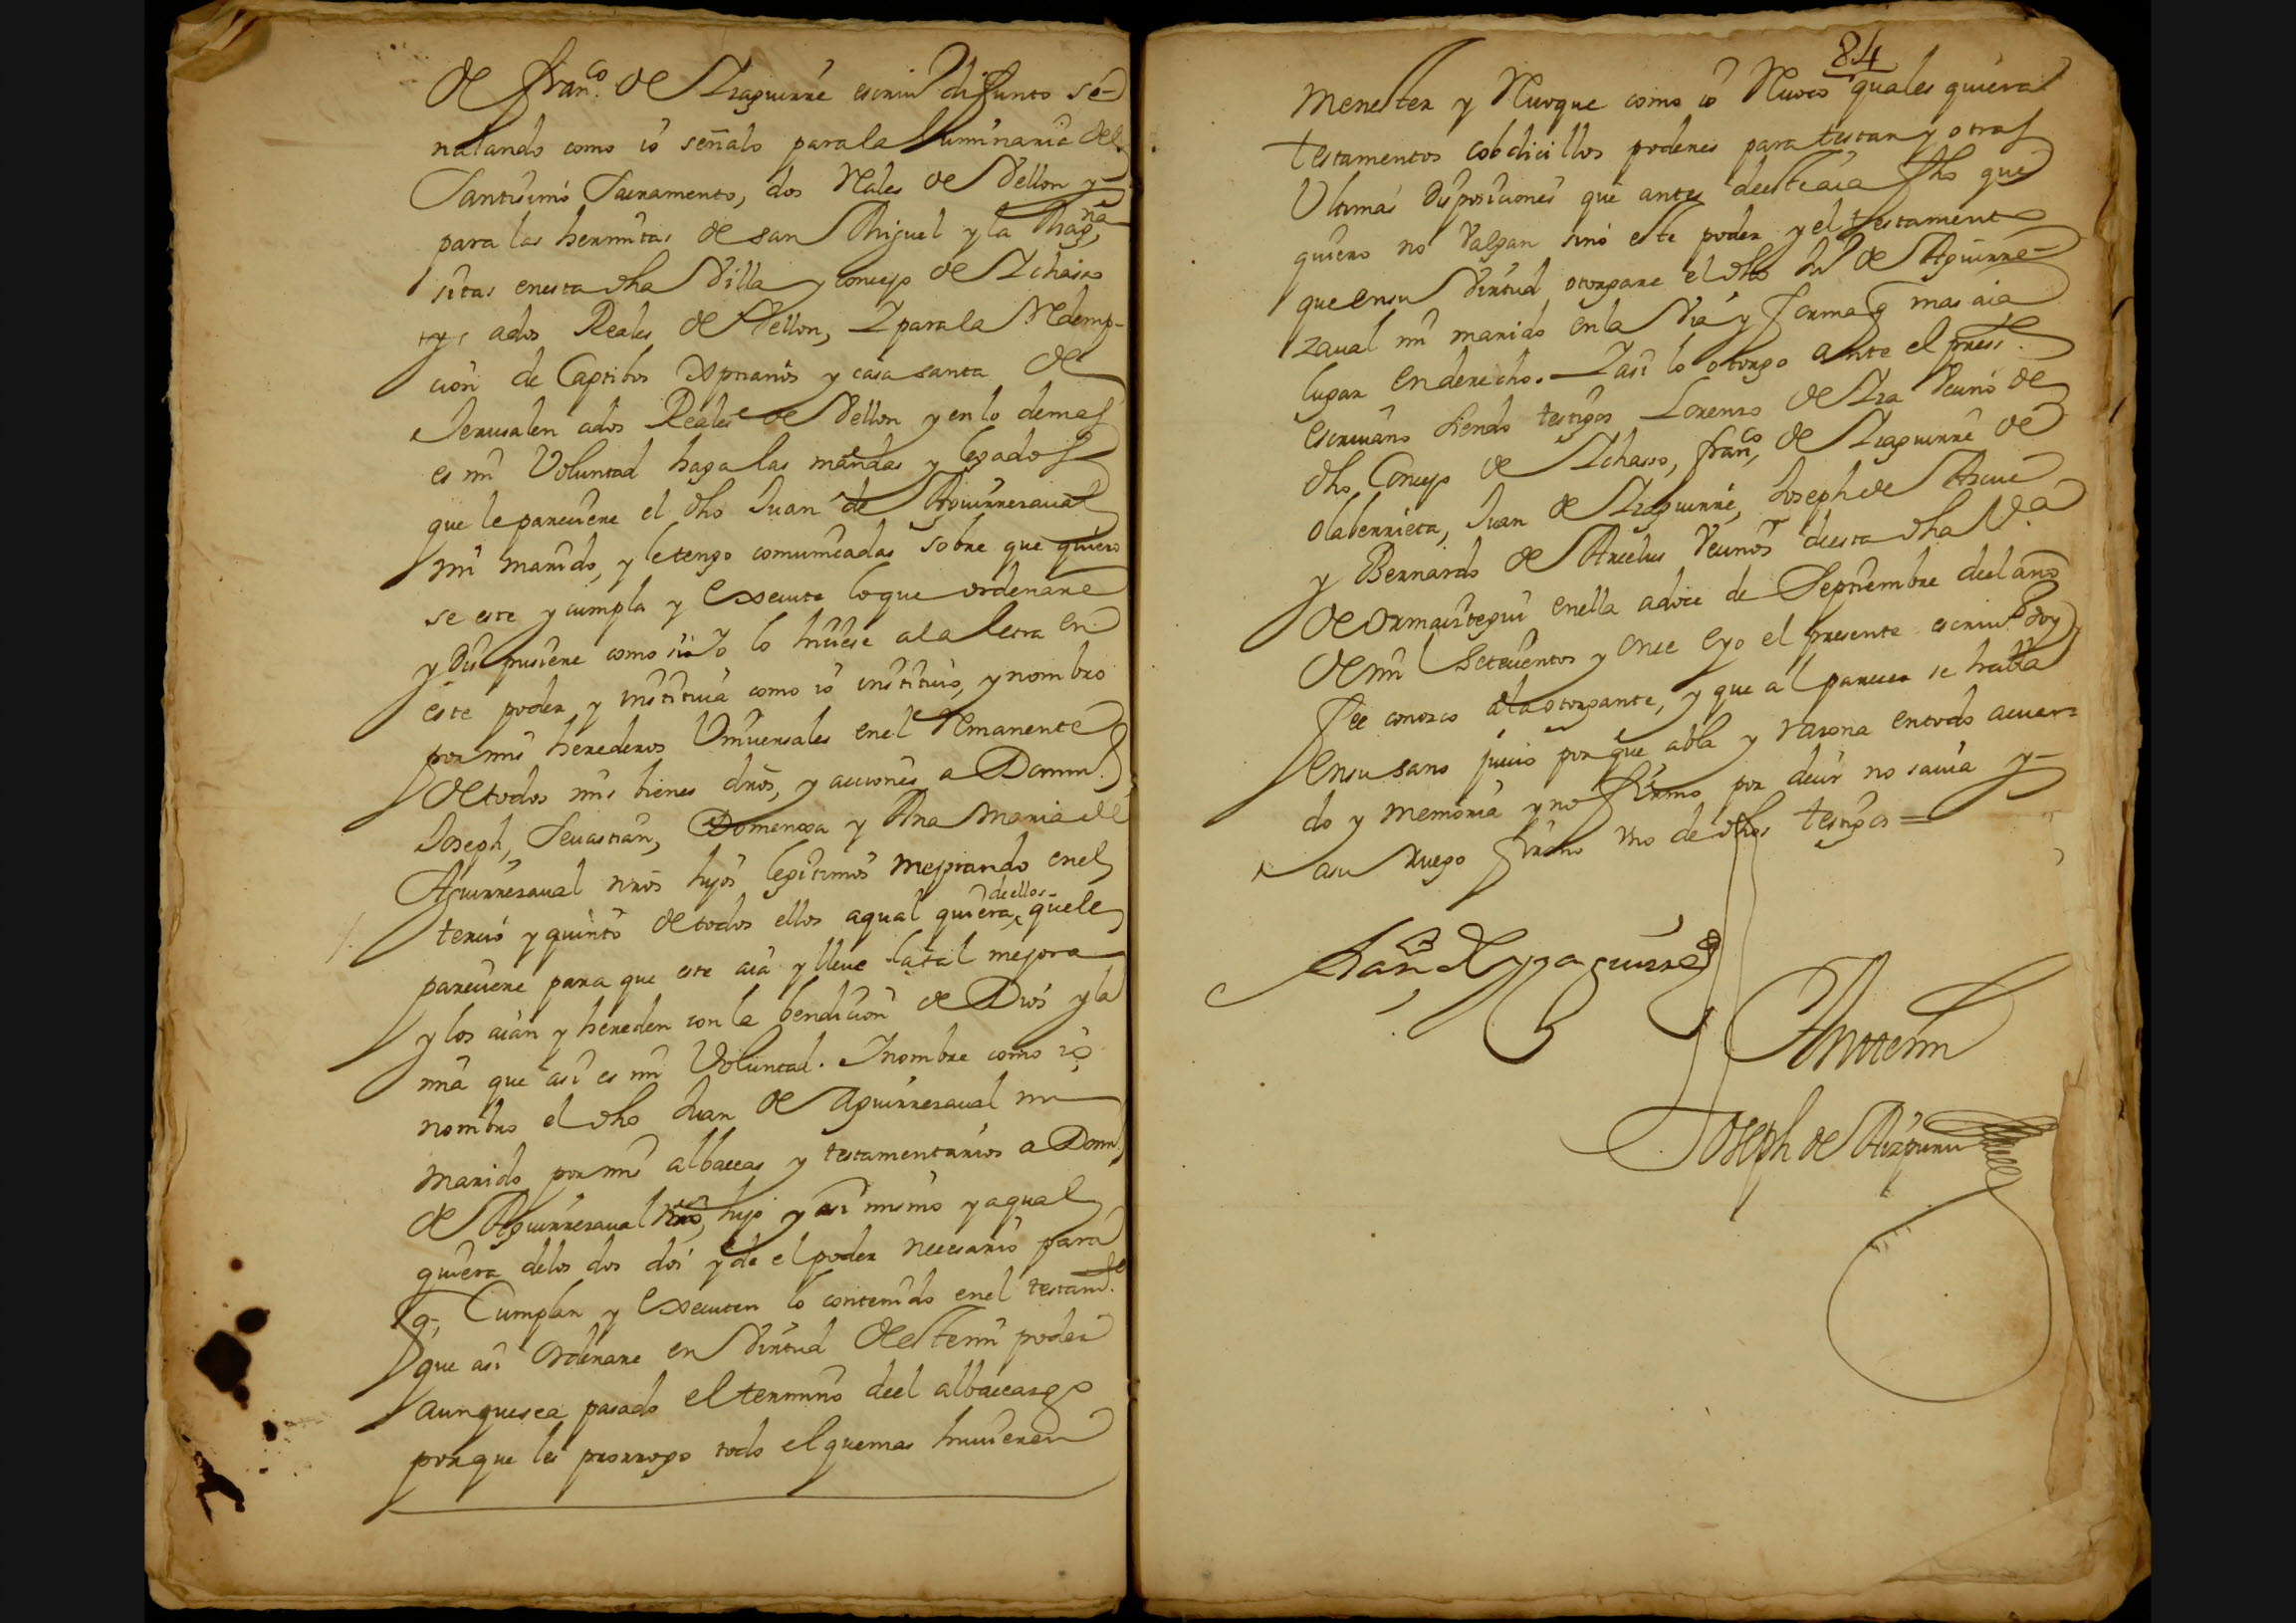 de Fran.co de Yraguirre escriu.o difunto se-
ñalando como io señalo para la Luminaria del
Santisimo Sacramento, dos Rales de Vellon y
para las hermitas de san Miguel y la Mag.na
sitas en esta dha Villa y Concejo de Ychasso
a dos Reales de Vellon, Y para la Redemp-
cion de Captibos Xptianos y casa santa de
Jerusalen a dos Reales de Vellon y en lo demas
es mi Voluntad haga las mandas y legados
que le pareciere el dho Juan de Aguirrezaual
mi marido, y le tengo comunicadas sobre que quiero
se este y cumpla y Execute lo que ordenare
y Dispusiere como si Yo lo hiziese a la letra en
este poder y instituia como io instituio, y nombro
por mis herederos Vniuersales en el Remanente
de todos mis bienes dros, y acciones a Domin.
Joseph, Seuastian, Domenxa y Ana Maria de
Aguirrezaual nros hijos legitimos mejorando en el
tercio y quinto de todos ellos a qual quiera de ellos que le
pareciere para que este aia y lleue la tal mejora
y los aian y hereden con la bendicion de Dios y la
mia que asi es mi Voluntad. Y nombre como io
nombro el dho Juan de Aguirrezaual mi
marido por mis albaceas y testamentarios a Domin
de Aguirrezaual nro hijo y asi mismo y a qual
quiera de los dos doi y de el poder necesario para
q. Cumplan y Executen lo contenido en el testam.to
que asi Ordenare en Virtud de este mi poder
aunque sea pasado el termino de el albaceazgo
porque les prorrogo todo el que mas huuieren
84
Menester y Reuoque como io Reuoco quales quiera
testamentos cobdicillos poderes para testar y otras
Vltimas Disposiciones que antes de este aia fho que
quiero no Valgan sino este poder y el testamento
que en su Virtud otorgare el dho Ju.o de Aguirre-
zaual mi marido en la Via y forma q mas aia
lugar en derecho. Y asi lo otorgo ante el press.te
escriuano siendo testigos Lorenzo de Yza Vecino de
dho Concejo de Ychasso, Fran.co de Yraguirre de
Olaberrieta, Juan de Yraguirre, Joseph de Arcue
y Bernardo de Arcelus Vecinos de esta dha V.a
de Ormaiztegui en ella a doce de Septiembre de el año
de mil Setecientos y once e yo el presente escriu.o doy
fee conozco a la otorgante, y que al parecer se halla
en su sano juicio porque abla y razona en todo acuer-
do y memoria y no firmo por decir no sauia y
a su ruego firmo vno de dhos testigos =
Fran.co de Yraguirre
Ante mi
Joseph de Aizpuru